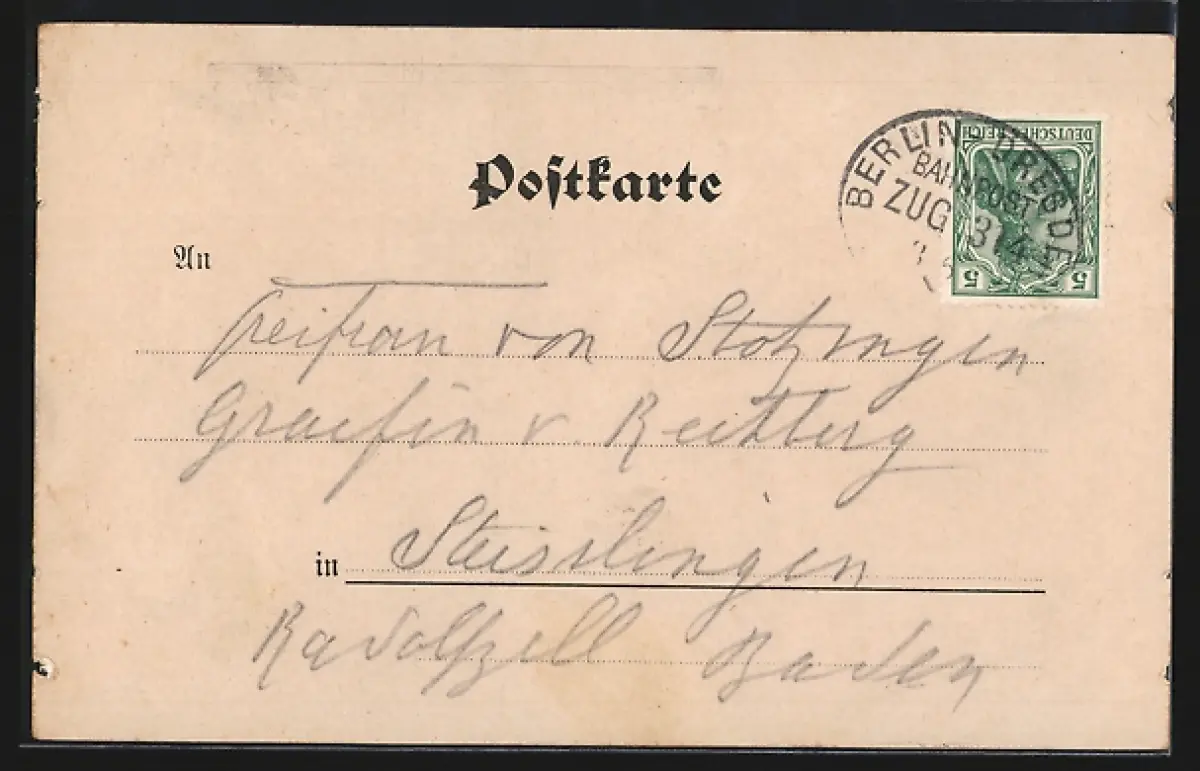 Postkarte
BERLIN - DRESDEN
BAHNPOST
ZUG 314
DEUTSCHES REICH
5 5
An
Freifrau von Stotzingen
Graefin v. Rechberg
in Steisslingen
Radolfzell Baden